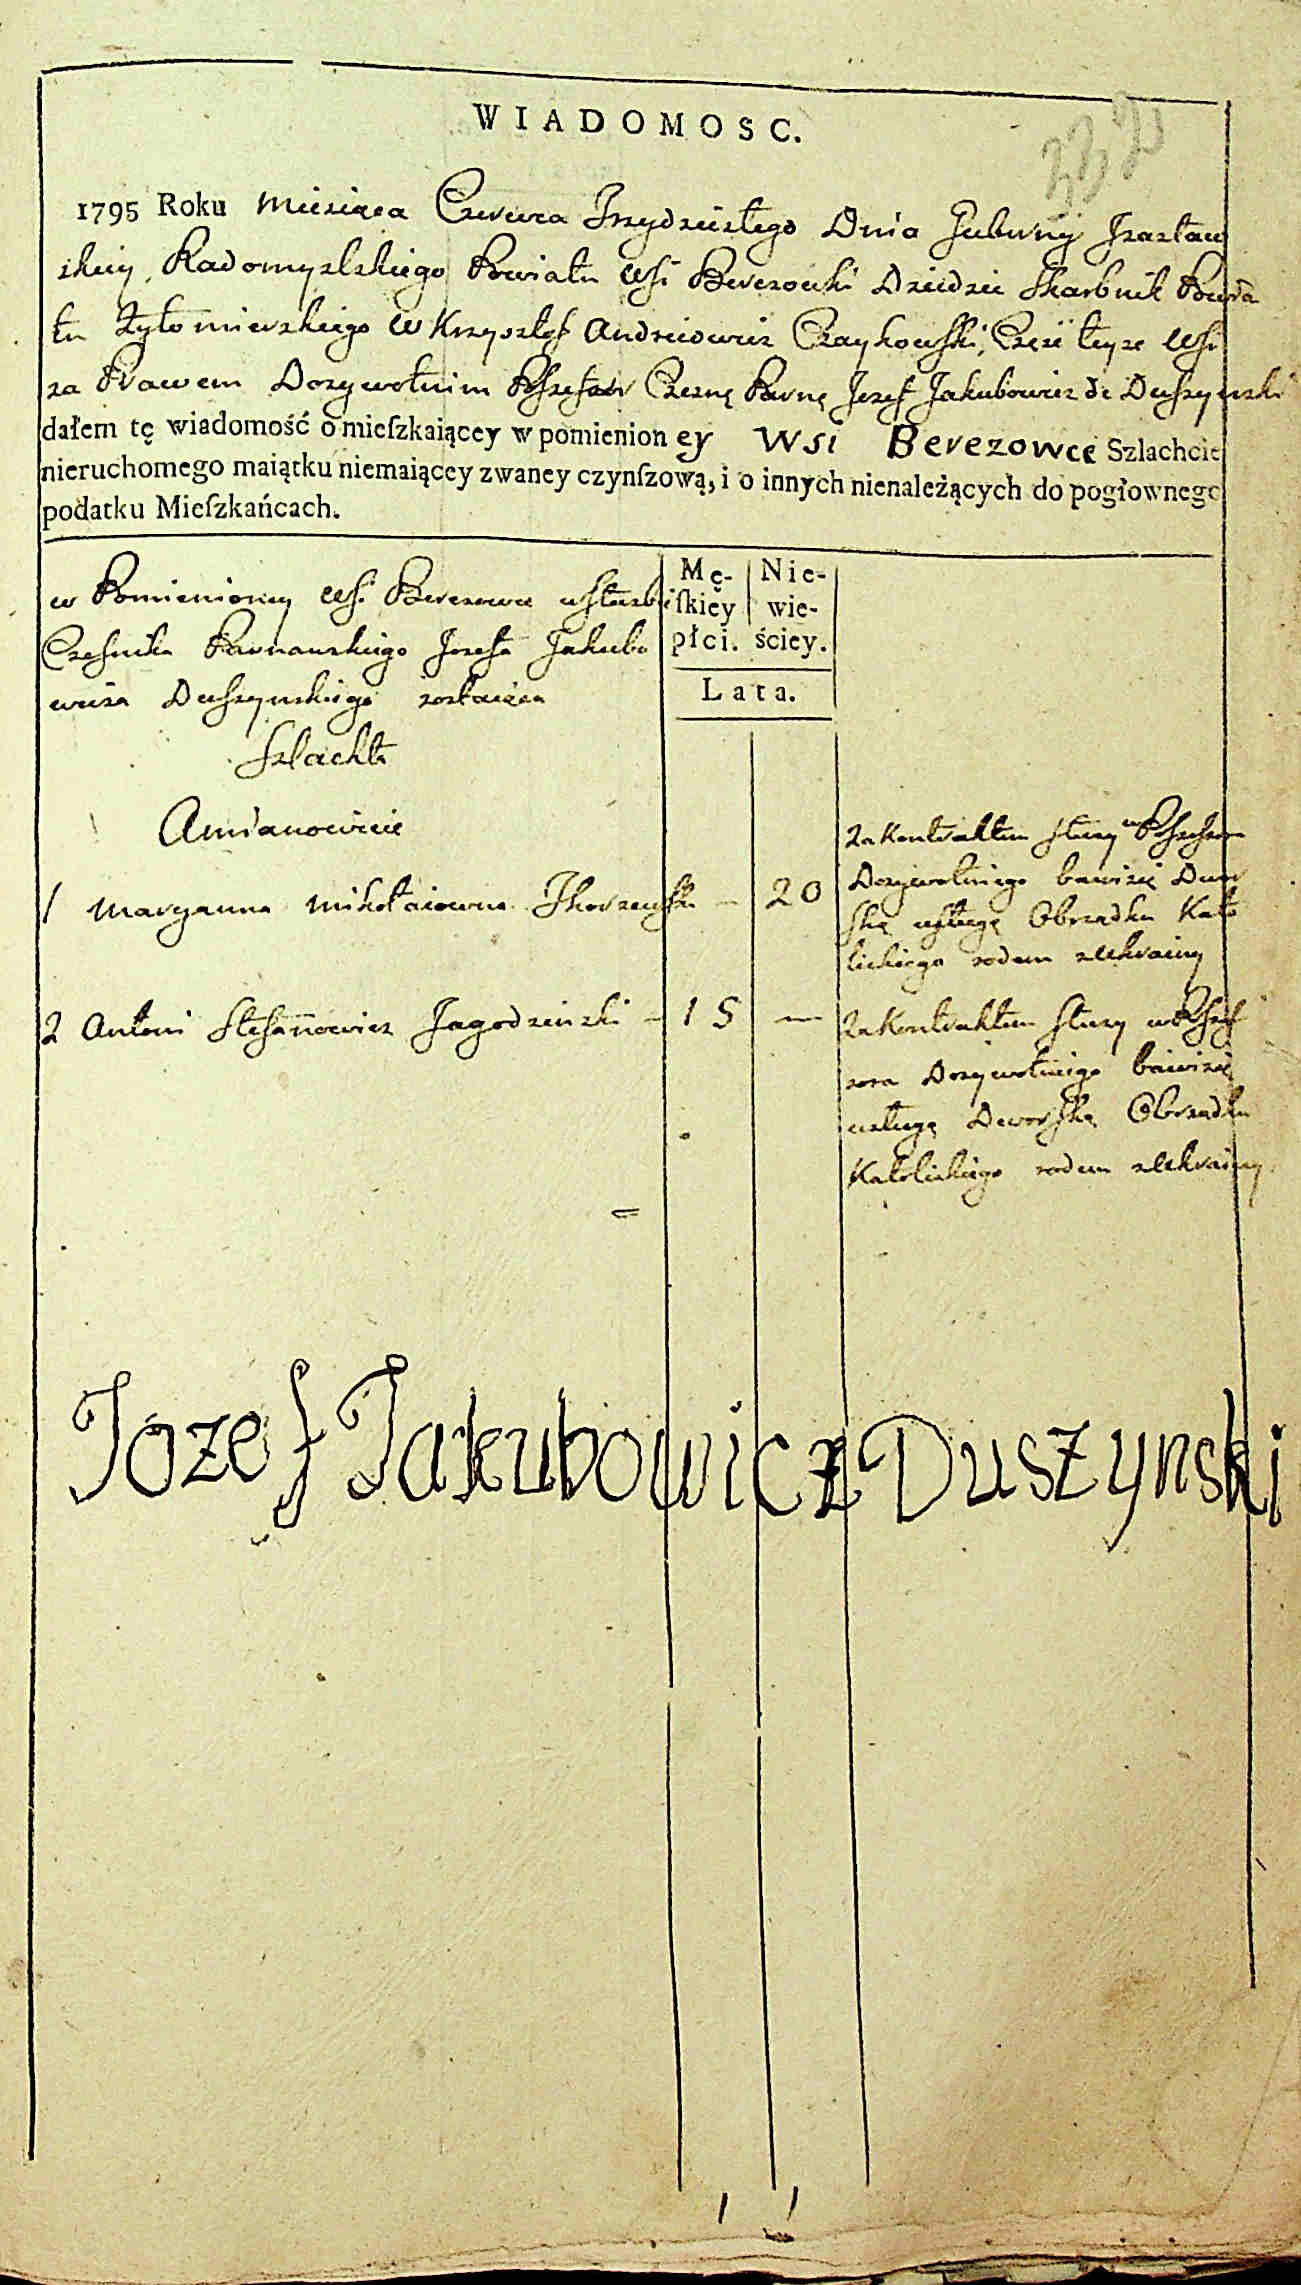 WIADOMOSC.
332
1795 Roku Miesiąca Czerwca Trzydziestego Dnia Gubernij Izasław
skiey Radomyslskiego Powiatu Wsi Berezowki Dziedzic Skarbnik Powia
tu Zytomierskiego W Krzysztof Andreiowicz Czaykowski, Część teyze Wsi
za Prawem Dozywotnim Possessor Czesnę Parnę Jozef Jakubowicz de Duszynski
dałem tę wiadomość o mieſzkaiącey w pomienion ey Wsi Berezowce Szlachcie
nieruchomego maiątku niemaiącey zwaney czynſzową, i o innych nienależących do pogłownego
podatku Mieſzkańcach.
w Pomienioney Wsi Berezowce u słuzbi
Czesnika Parnawskiego Jozefa Jakubo
wicza Duszynskiego zostaiąca
Szlachta
Amianowicie
Mę-
ſkiey
płci.
Nie-
wie-
ściey.
Lata.
1 Maryanna Mikołaiowna - 20
za Kontraktem słuzy w Possessora
Dozywotniego bawi się Dwor
ską usługą Obrządku Kato
lickiego rodem z Ukrainy
2 Antoni Stefannowicz Jagodzinski - 15 —
za Kontraktem słuzy w Posses
sora Dozywotniego bawi się
usługą Dworską Obrządku
Katolickiego rodem z Ukrainy
Jozef Jakubowicz Duszynski
1 1